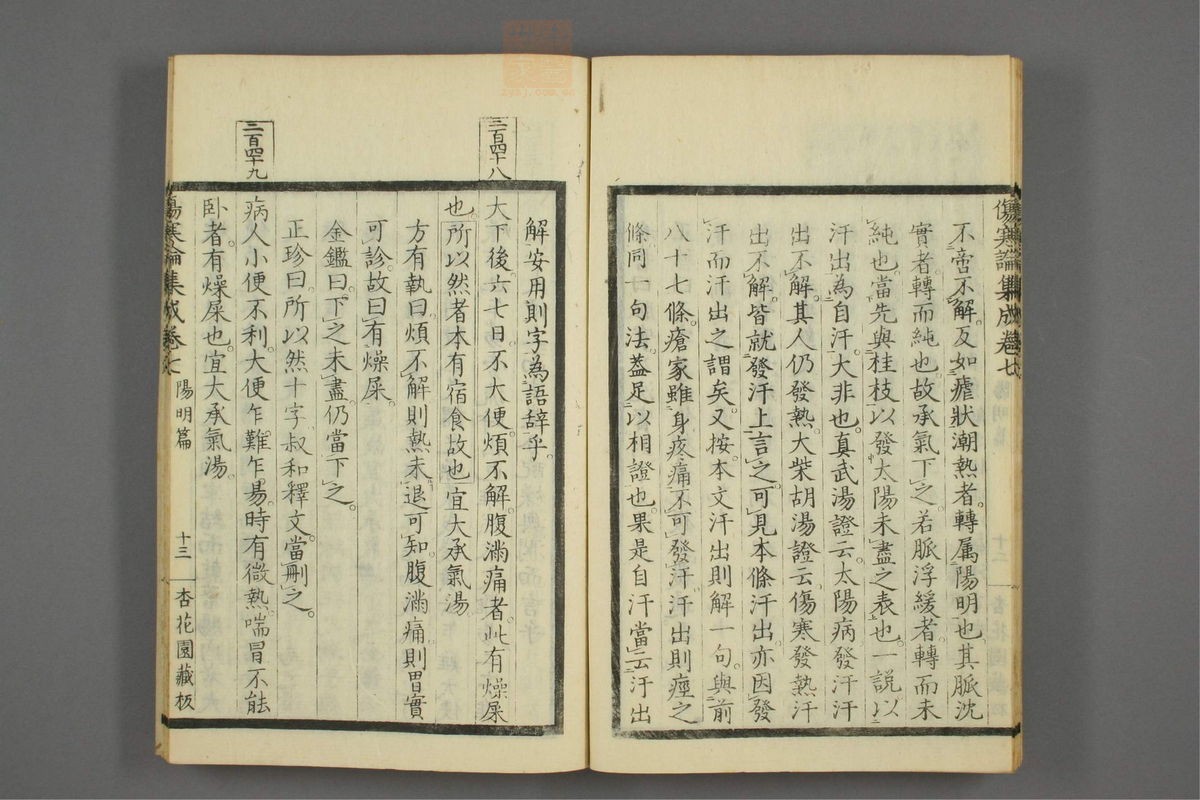 傷寒論集成卷七
不啻不解反如瘧狀潮熱者轉属陽明也其脈沈
實者轉而純也故承氣下之若脈浮緩者轉而未
純也當先與桂枝以發太陽未盡之表也一說以
汗出為自汗大非也真武湯證云太陽病發汗汗
出不解其人仍發熱大柴胡湯證云傷寒發熱汗
出不解皆就發汗上言之可見本條汗出亦因發
汗而汗出之謂矣又按本文汗出則解一句與前
八十七條瘡家雖身疼痛不可發汗汗出則痙之
條同一句法葢足以相證也果是自汗當云汗出
解安用則字為語辞乎
三百四十八
大下後六七日不大便煩不解腹滿痛者此有燥屎
也所以然者本有宿食故也宜大承氣湯
方有執曰煩不解則熱未退可知腹滿痛則胃實
可診故曰有燥屎
金鑑曰下之未盡仍當下之
正珍曰所以然十字叔和釋文當刪之
三百四十九
病人小便不利大便乍難乍易時有微熱喘冒不能
卧者有燥屎也宜大承氣湯
傷寒論集成卷七 陽明篇 十三 杏花園藏板